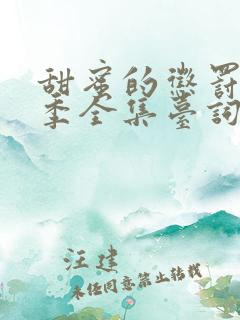 甜蜜的懲罰
季全集臺詞
汪建
未经同意禁止转载